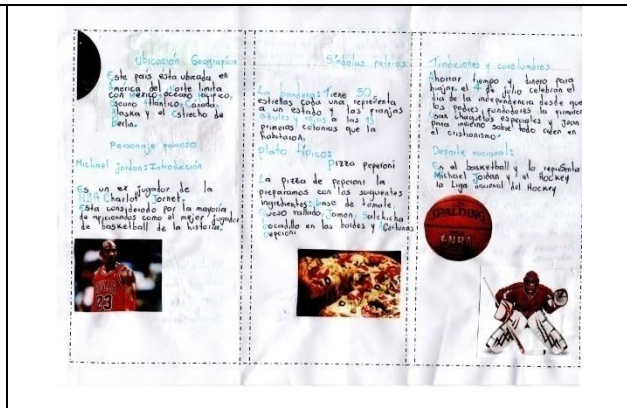 Ubicación Geografica
Este país esta ubicada en
America del Norte limita
con México, océano Pacífico,
Océano Atlántico, Canada
Alaska y el Estrecho de
Berlin.
Personaje famoso
Michael Jordan: Introducción
Es un ex jugador de la
NBA Charlot Jornet.
Esta considerado por la mayoria
de aficionados como el mejor jugador
de basketball de la historia.
BULLS
23
Símbolos patrios
La bandera: Tiene 50
estrellas cada una representa
a un estado y las franjas
azules y rojas a las 13
primeras colonias que la
habitaron.
plato típico:
Pizza peperoni
La pizza de peperoni la
preparamos con los siguientes
ingredientes: baso de tomate,
Queso rallado, Jamon, Salchicha
bocadillo en los boldes y
peperoni
Tradiciones y costumbres
Ahorrar tiempo y dinero para
biajar, el 4 de julio celebran el
dia de la independencia desde que
los padres fundadores la firmaron
Usan chaquetas especiales y Jean
para invierno sobre todo creen en
el cristianismo.
Deporte nacional:
Es el basketball y lo representa
Michael Jordan y el Hockey
la Liga nacional del Hockey
SPALDING
NBA